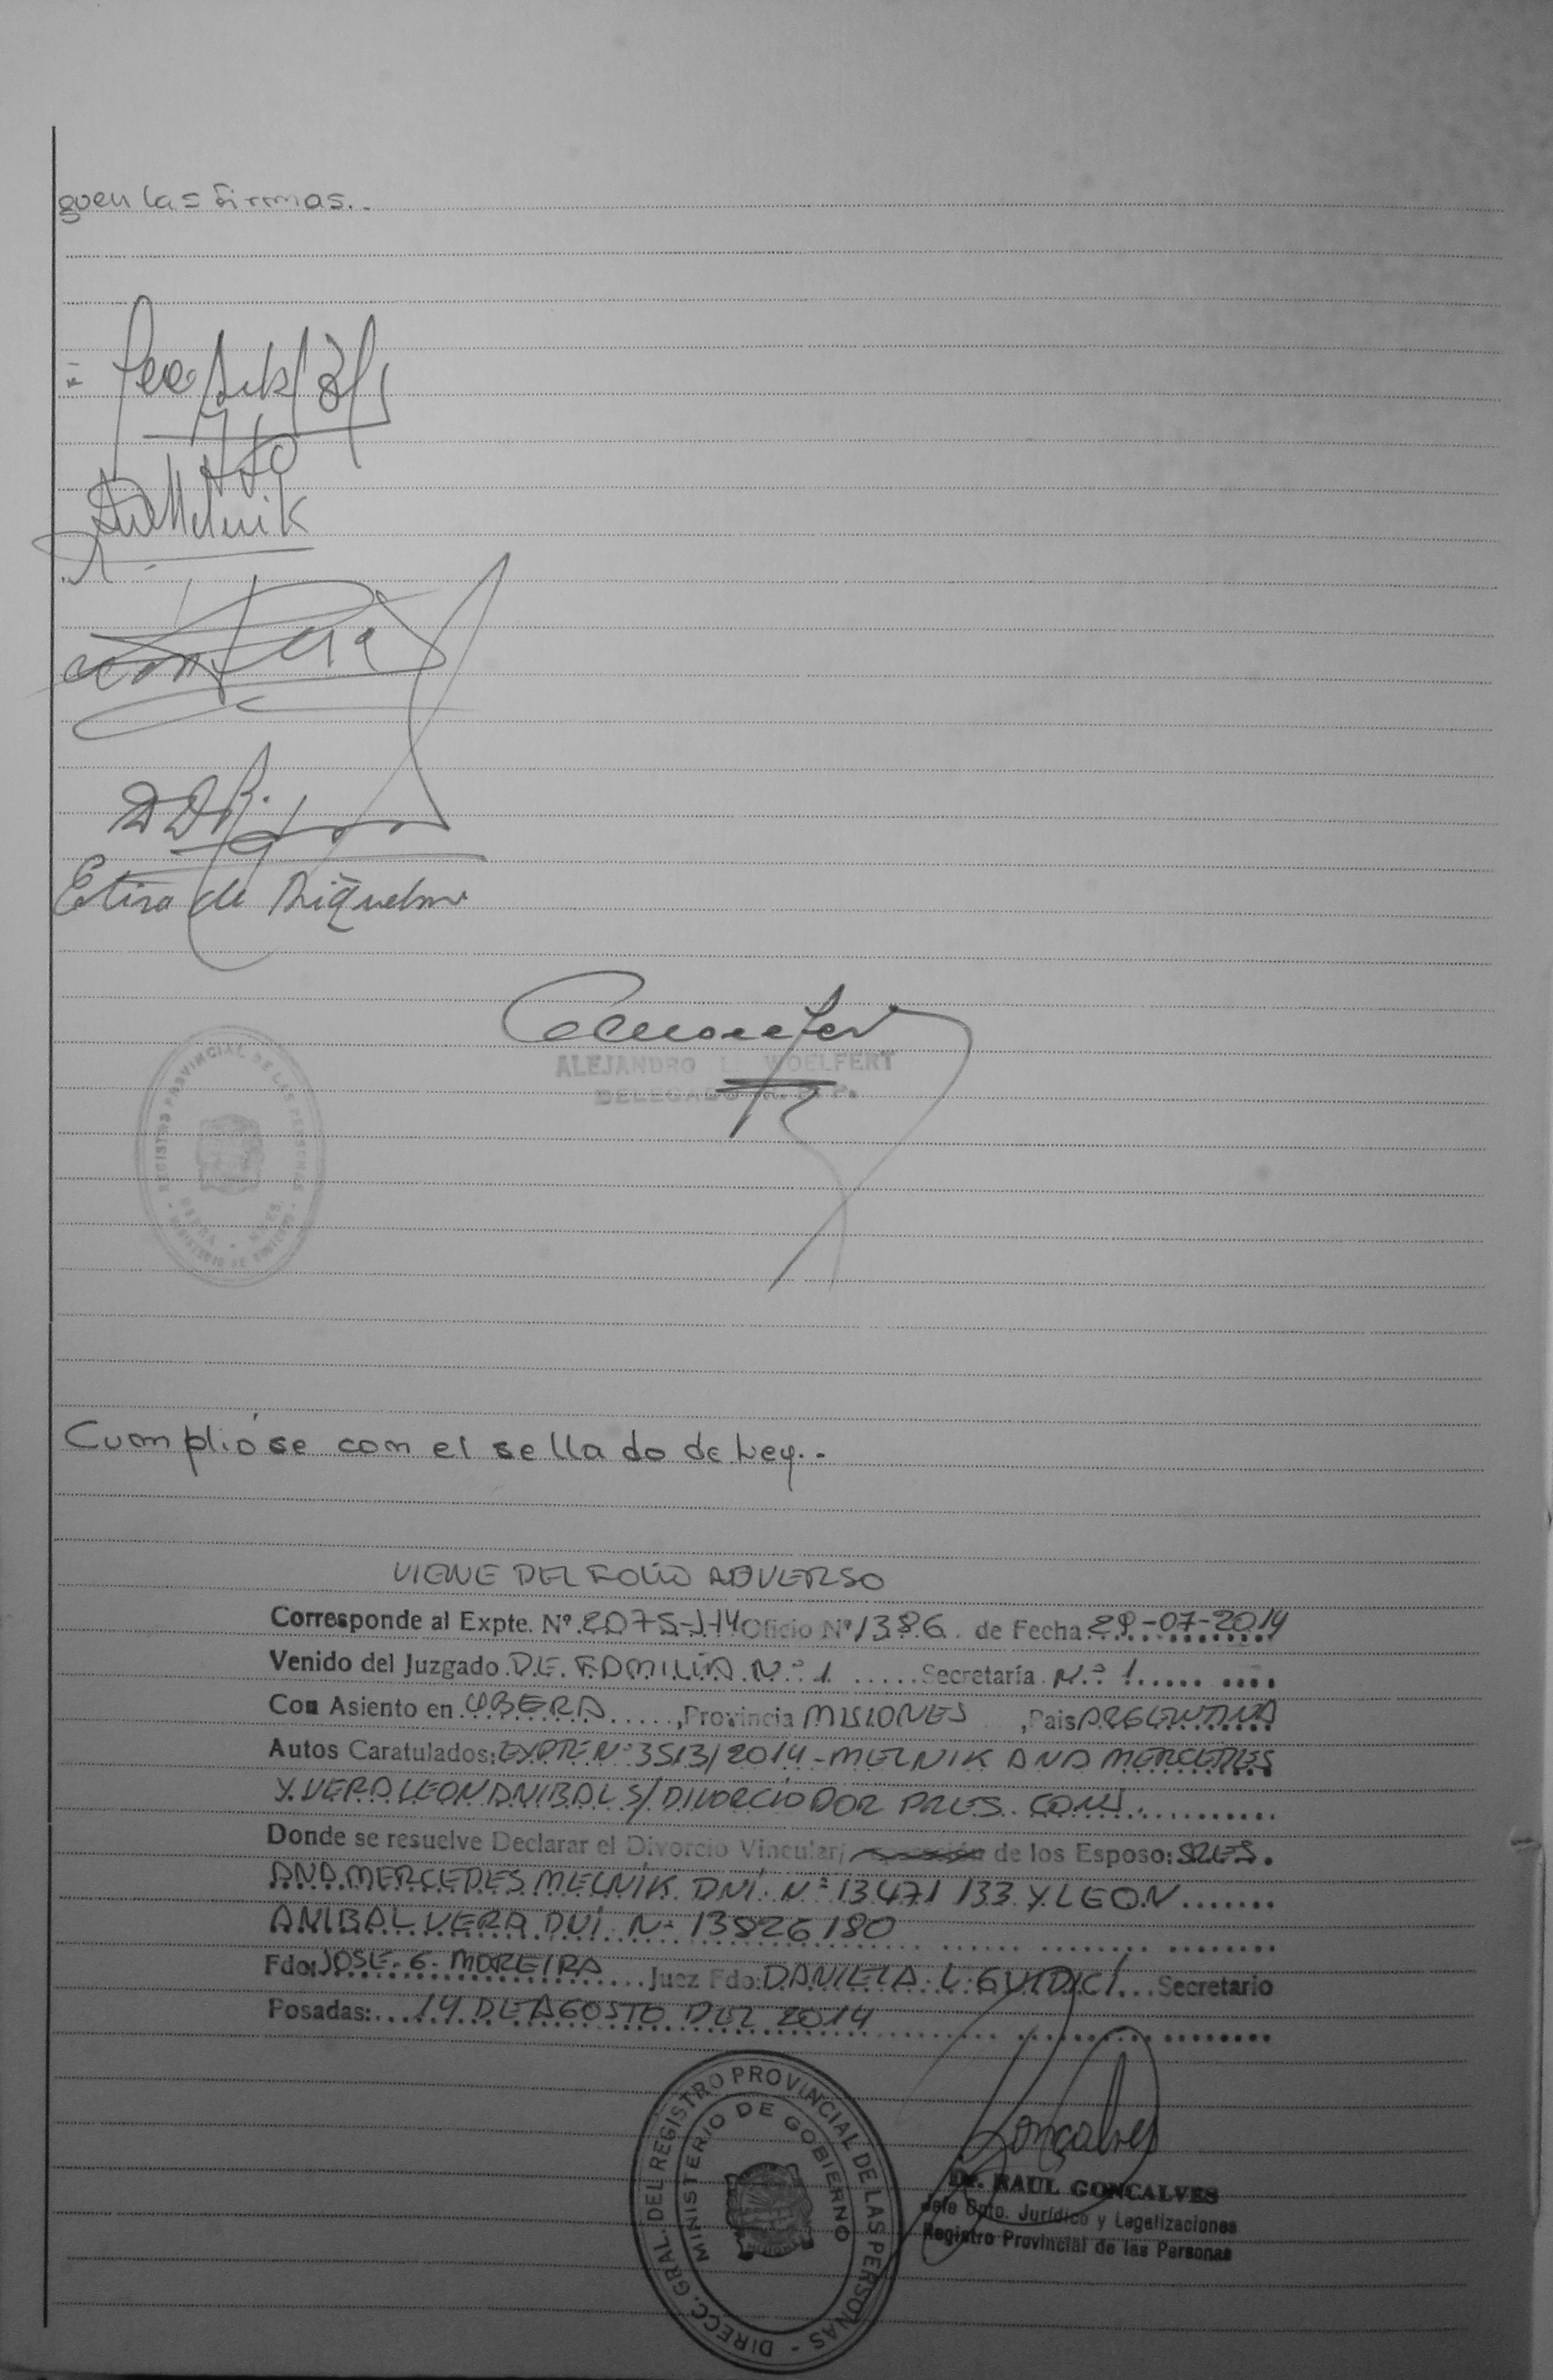 guen las firmas.-
Melnik
Vera
Elisa de Riquelme
ALEJANDRO L. WOELFERT
DELEGADO R. P. P.
REGISTRO PROVINCIAL DE LAS PERSONAS
MINISTERIO DE GOBIERNO
Cumplióse con el sellado de Ley.-
VIENE DEL FOLIO ADVERSO
Corresponde al Expte. Nº 2075-J-14 Oficio Nº 1386 de Fecha 29-07-2014
Venido del Juzgado DE FAMILIA Nº 1 Secretaría Nº 1
Con Asiento en OBERA, Provincia MISIONES, Pais ARGENTINA
Autos Caratulados: EXPTE Nº 3513/2014 - MELNIK ANA MERCEDES
Y VERA LEON ANIBAL S/ DIVORCIO POR PRES. CONJ.
Donde se resuelve Declarar el Divorcio Vincular/ de los Esposo: SRES.
ANA MERCEDES MELNIK DNI. Nº 13471133 Y LEON
ANIBAL VERA DNI. Nº 13826180
Fdo: JOSE G. MOREIRA Juez Fdo: DANIELA L. GUIDICI Secretario
Posadas: 14 DE AGOSTO DEL 2014
DIRECC. GRAL. DEL REGISTRO PROVINCIAL DE LAS PERSONAS
MINISTERIO DE GOBIERNO
MISIONES
Gonçalves
Dr. RAUL GONCALVES
Jefe Dpto. Jurídico y Legalizaciones
Registro Provincial de las Personas